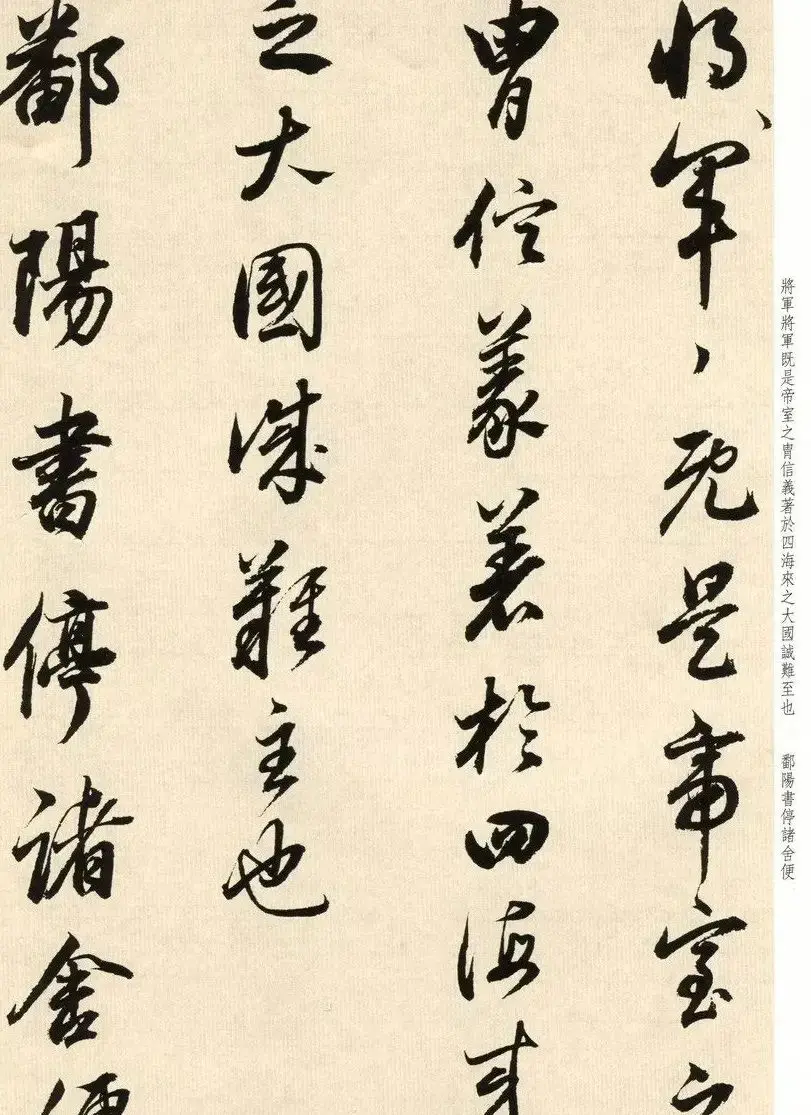 將軍〻既是帝室之
冑信義著於四海来
之大國誠難主也
鄱陽書停諸舍便
將軍將軍既是帝室之冑信義著於四海來之大國誠難至也 鄱陽書停諸舍便